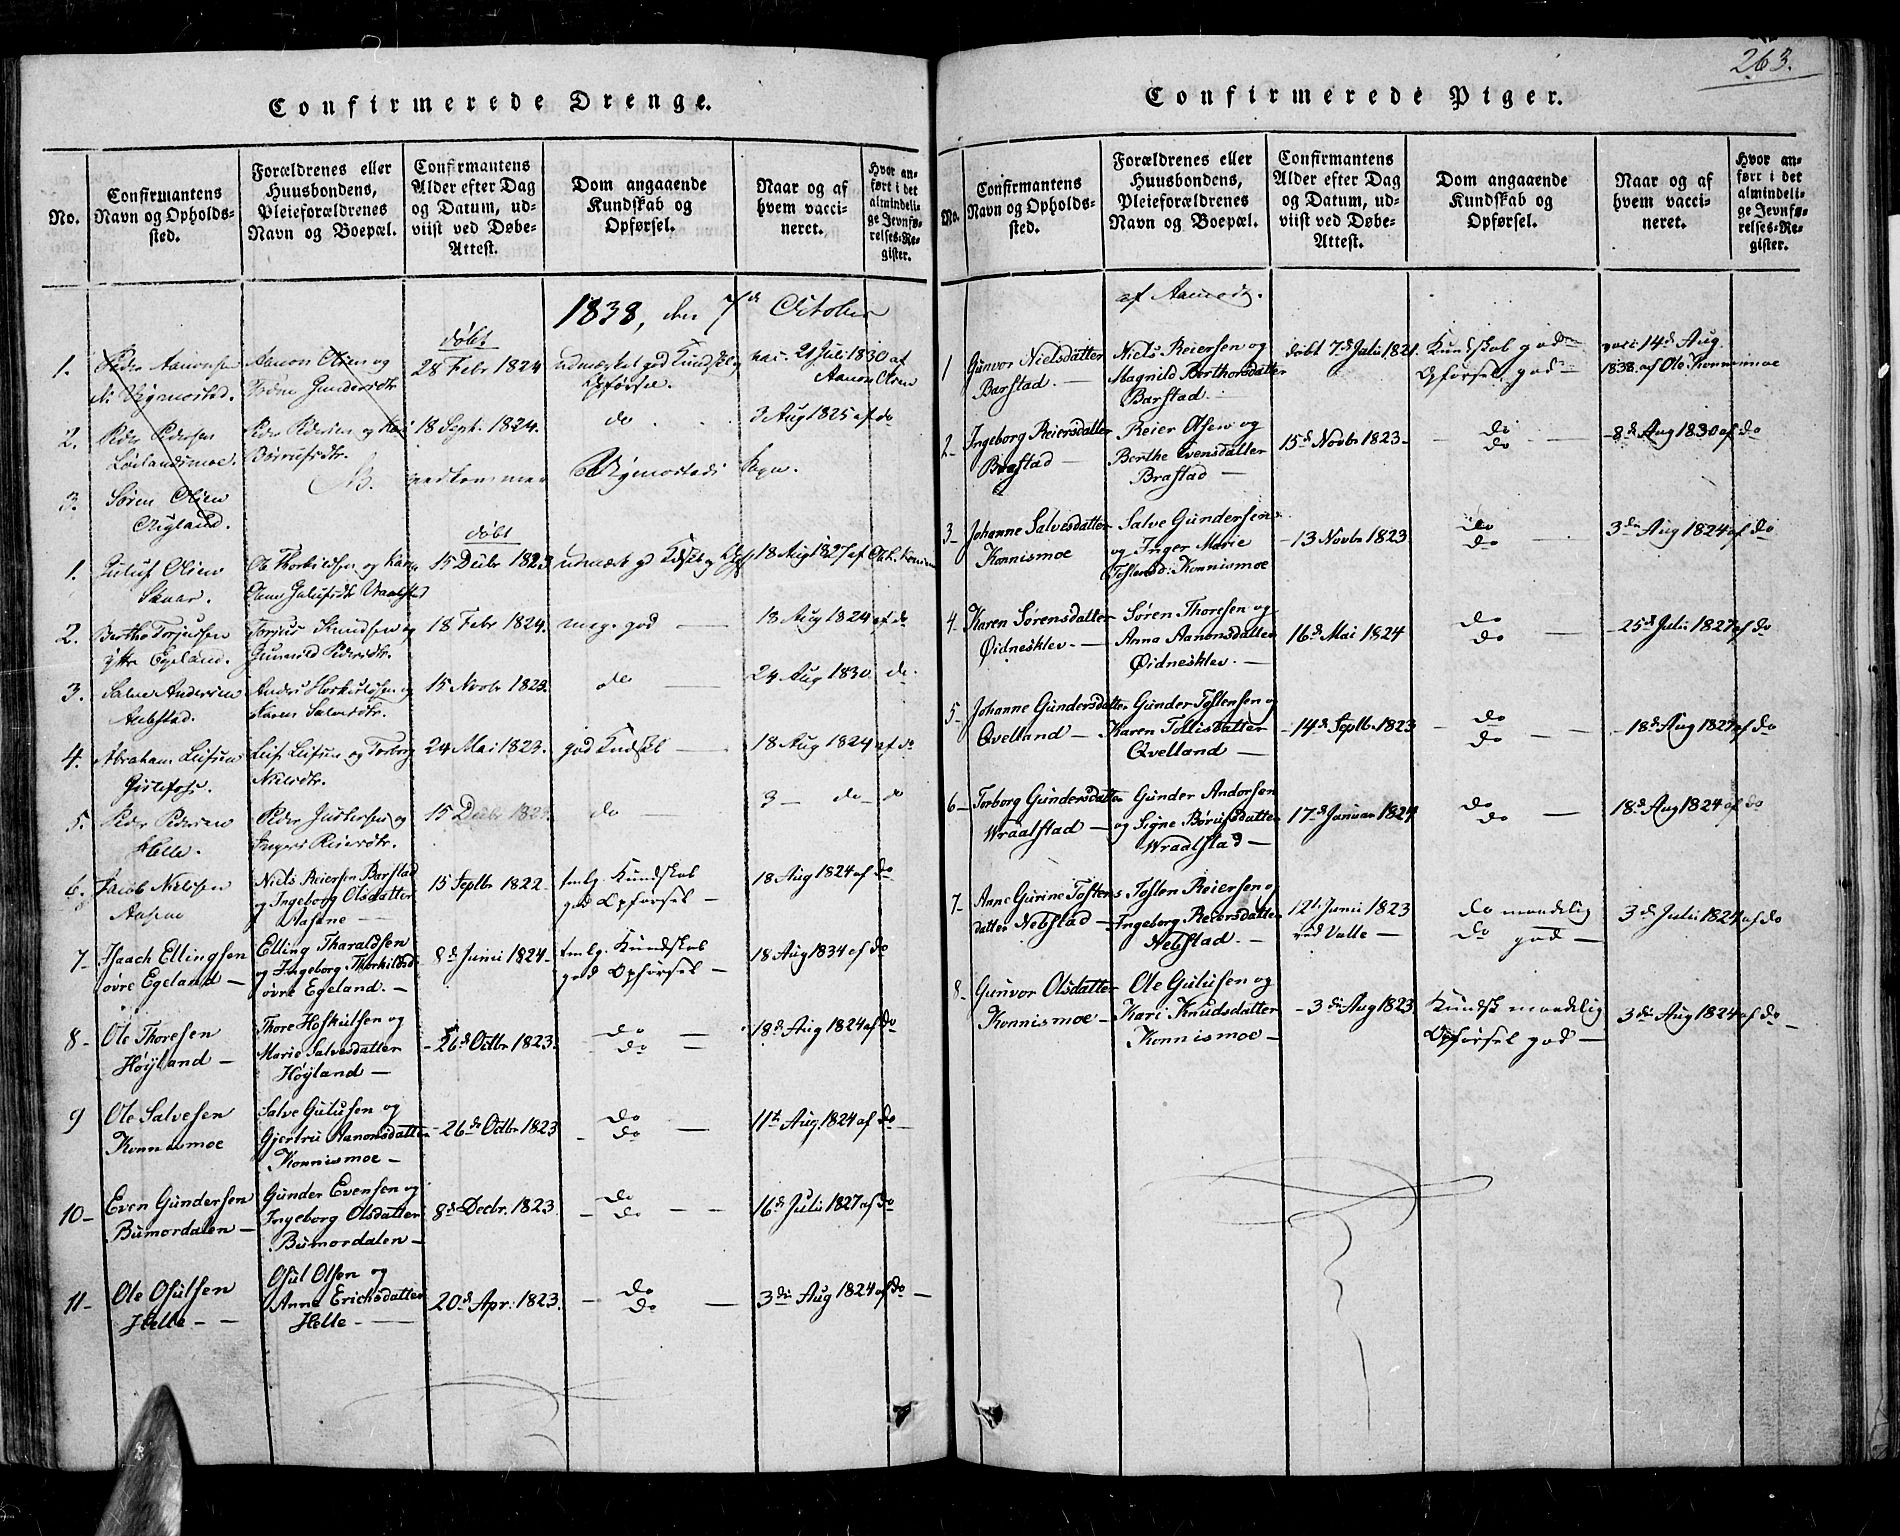 Confirmerede Drenge.
No.
Confirmantens
Navn og Opholds-
sted.
Forældrenes eller
Huusbondens,
Pleieforældrenes
Navn og Boepæl.
Confirmantens
Alder efter Dag
og Datum, ud-
viist ved Døbe-
Attest.
Dom angaaende
Kundskab og
Opførsel.
Naar og af
hvem vacci-
neret.
Hvor an-
ført i det
almindeli-
ge Jevnfø-
relses-Re-
gister.
1838, den 7de October
døbt
1. Peder Aanonsen
N. Øymostad.
Aanon Olsen og
Gundersdtr
28 Febr 1824
udmærket god Kundskb
Opførsel.
vac. 21 Juli 1830 af
Aanon Olsen
2. Peder Pedersen
Løilandsmoe.
Peder Pedersen og
18 Sept. 1824.
do
3 Aug 1825 af do
NB. vedkommer Øymostads Sogn.
3. Søren Olsen
døbt
1. Guluf Olsen
Skaar.
Ole Thorkildsen og
15 Debr 1823
18 Aug 1827 af
2. Berthe Torjussen
ytre Egeland.
Torjus Knudsen og
Gunvald Pedersdtr.
18 Febr 1824.
meg. god —
18 Aug 1824 af do
3. Salve Andersen
Nebstad.
Anders Hoskuldsen og
Karen Salvesdtr.
15 Novbr 1823.
do —
24 Aug 1830 do.
4. Abraham Leifsen
Leif Leifsen og Torborg
Nielsdtr.
24 Mai 1823.
god Kndskb —
18 Aug 1824 af do
5. Peder Pedersen
Helle.
Peder
Reiersdtr.
15 Debr
do —
3 — do — do
6. Jacob Nielsen
Aasene
Niels Reiersen Barstad
og Ingeborg Olsdatter
Aasene —
15 Septbr 1822.
tmlg. Kundskab
god Opførsel —
18 Aug 1824 af do
7- Isaach Ellingsen
øvre Egeland —
Elling Tharaldsen
og Ingeborg Thorkildsd
øvre Egeland. —
8de Junii 1824-
tmlg. Kundskab
god Opførsel —
18 Aug 1834 af do
8- Ole Thoresen
Höÿland —
Thore Hoskulsen og
Marie Salvesdatter
Höÿland —
-26de Octbr 1823.
do —
do —
18de Aug 1824 af do
9 Ole Salvesen
Konnismoe
Salve Gulufsen og
Gjertru Aanonsdatter
Konnismoe —
-26de Octbr 1823
do
do —
11te Aug 1824 af do
10- Even Gundersen
Bumordalen —
Gunder Evensen og
Ingeborg Olsdatter
Bumordalen —
8de Decbr. 1823.
do
do — —
16de Julii 1827 af do
11- Ole Osulsen
Helle — —
Osul Olsen og
Anne Erichsdatter
Helle — —
20de Apr: 1823.
do
do —
3die Aug 1824 af do —
263.
Confirmerede Piger.
No.
Confirmantens
Navn og Opholds-
sted.
Forældrenes eller
Huusbondens,
Pleieforældrenes
Navn og Boepæl.
Confirmantens
Alder efter Dag
og Datum, ud-
viist ved Døbe-
Attest.
Dom angaaende
Kundskab og
Opførsel.
Naar og af
hvem vacci-
neret.
Hvor an-
ført i det
almindeli-
ge Jevnfø-
relses-Re-
gister.
1 Gunvor Nielsdatter
Barstad. —
Niels Reiersen og
Magnild Berthorsdatter
Barstad —
døbt 7de Julii 1821.
Kundskab
Opførsel god —
vacc: 14de Aug.
1838. af Ole Konnismoe
2- Ingeborg Reiersdatter
Brastad —
Reier Olsen og
Berthe Evensdatter
Brastad —
15de Novbr 1823-
do
do —
8de Aug 1830 af do
3- Johanne Salvesdatter
Konnismoe
Salve Gundersen
og Inger Marie
Tostensd: Konnismoe
-13 Novbr 1823
do
do —
3die Aug 1824 af do
4- Karen Sørensdatter
Øidnesklev. —
Søren Thoresen og
Anna Aanonsdatter
Øidnesklev. —
16de Mai 1824
do
do —
25de Julii 1827 af do
5- Johanne Gundersdatter
Qvelland —
Gunder Tostensen og
Karen Tollisdatter
Qvelland —
-14de Septbr 1823
do
do —
18de Aug 1827 af do
6- Torborg Gundersdatter
Wraalstad —
Gunder Andorsen
og Signe Børufsdatter
Wraalstad —
17de Januar 1824
do
do —
18de Aug 1824 af do
7- Anne Gurine Tostens
datter Nebstad —
Tosten Reiersen og
Ingeborg Reiersdatter
Nebstad. —
12te Junii 1823
ved Valle —
do maadelig
do god —
3de Julii 1824 af do
8- Gunvor Olsdatter
Konnismoe —
Ole Gulufsen og
Kari Knudsdatter
Konnismoe —
-3die Aug 1823
Kundsk maadelig
Opførsel god —
3die Aug 1824 af do —